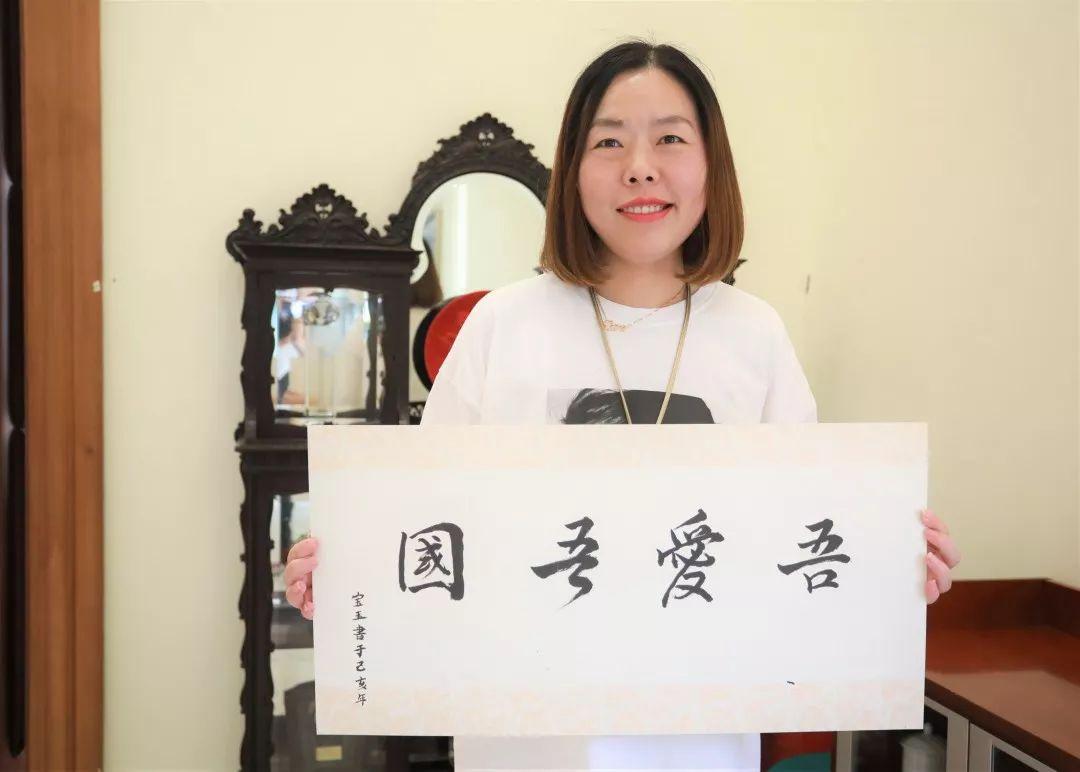 吾愛吾國
宝玉書于己亥年